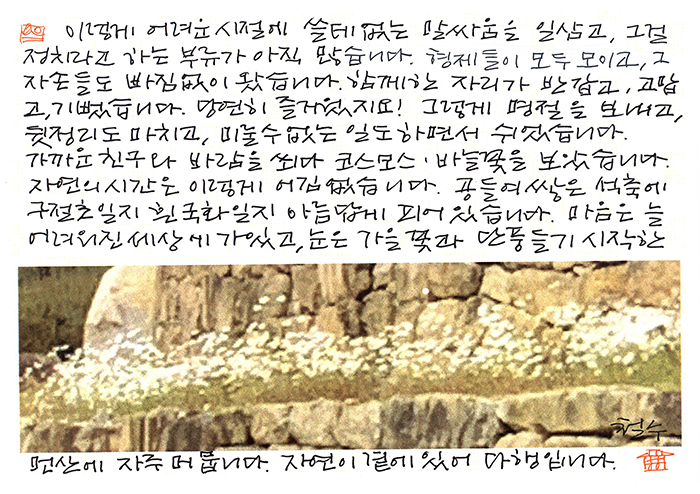 이렇게 어려운 시절에 쓸데없는 말싸움을 일삼고, 그걸
정치라고 하는 부류가 아직 많습니다. 형제들이 모두 모이고, 그
자손들도 빠짐없이 왔습니다. 함께한 자리가 반갑고, 고맙
고, 기뻤습니다. 당연히 즐거웠지요! 그렇게 명절을 보내고,
뒷정리도 마치고, 미룰수 없는 일도 하면서 쉬었습니다.
가까운 친구와 바람을 쐬다 코스모스·바늘꽃을 보았습니다.
자연의 시간은 이렇게 어김없습니다. 공들여 쌓은 석축에
구절초일지 흰국화일지 아름답게 피어있습니다. 마음은 늘
어려워진 세상에 가있고, 눈은 가을꽃과 단풍들기 시작한
철수
먼산에 자주 머뭅니다. 자연이 곁에 있어 다행입니다.